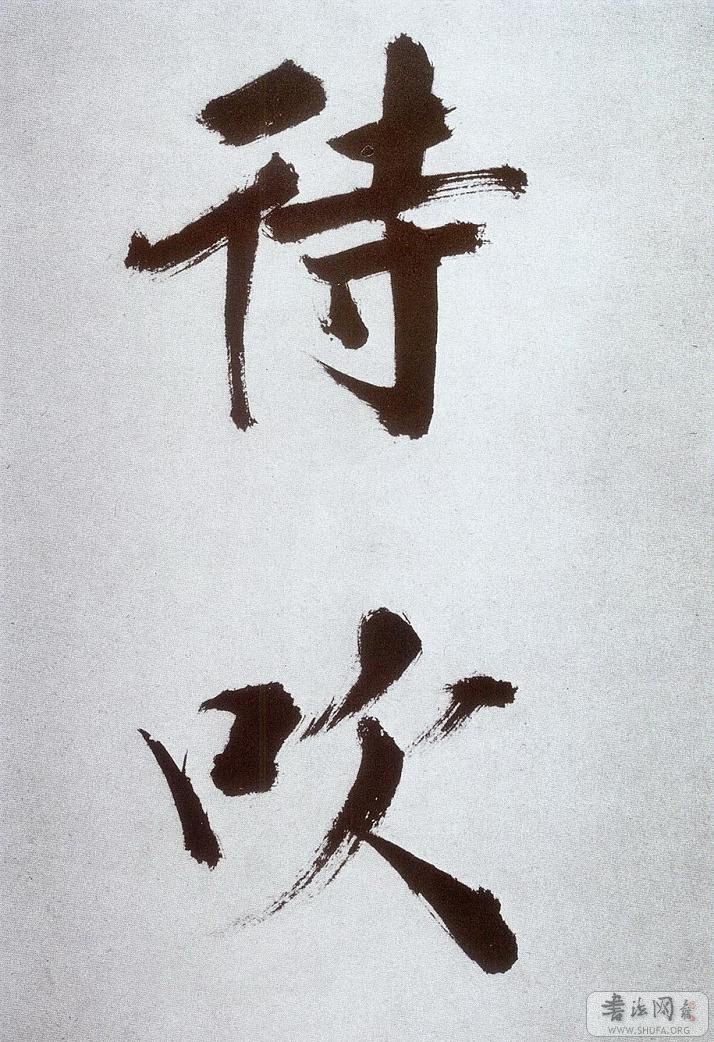 待吹
书法网
WWW.SHUFA.ORG